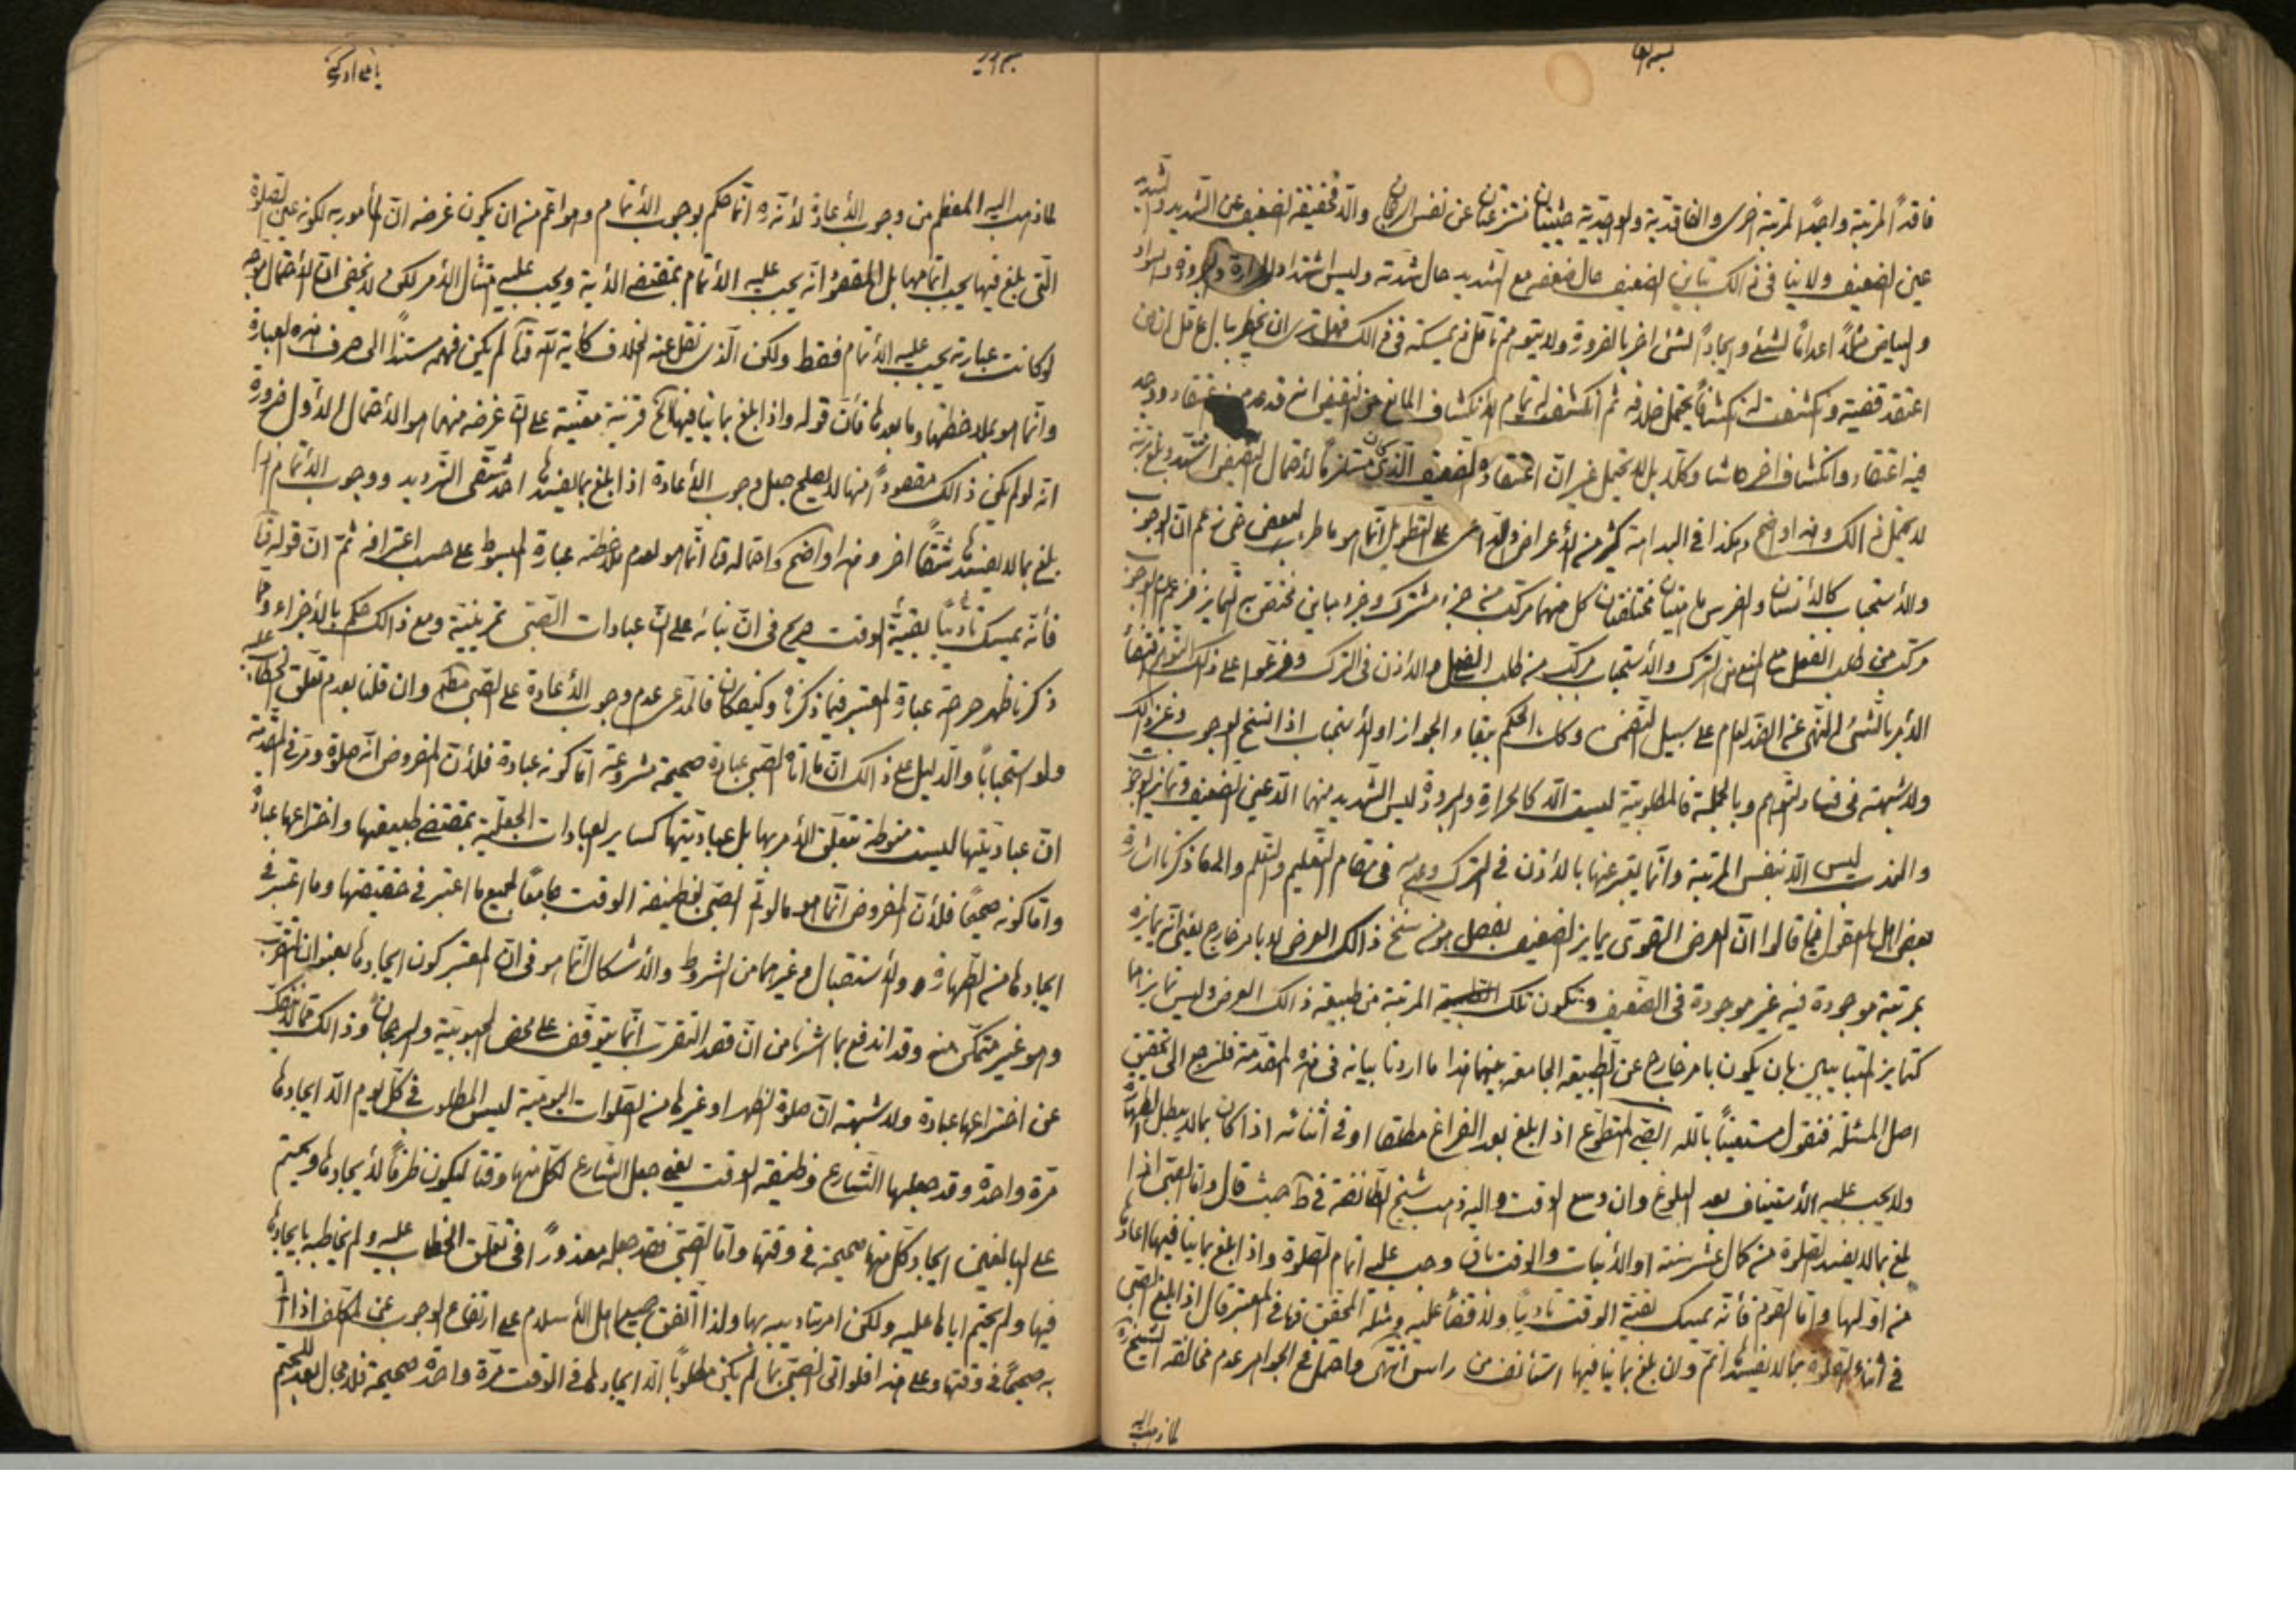 فاقداً لمرتبة واجداً لمرتبة اخرى والفاقدية والواجدية حيثيتان منتزعتان عن نفس الرجحان والا فحقيقة الضعيف عين الشديد والشديد
عين الضعيف ولا ينافى ذالك تباين الضعيف حال ضعفه مع الشديد حال شدته وليس اشتداد الحرارة والبرودة والسواد
والبياض مثلاً اعداماً لشئ وايجاداً لشئ اخر بالضرورة ولا يتوهم ذالك فهل ترى ان يخطر ببال عاقل ان من
اعتقد قضية وانكشفت له انكشافاً يحتمل خلافه ثم انكشف له تمام الانكشاف المانع من النقيض انه قد عدم منه اعتقاد ووجد
فيه اعتقاد وانكشاف اخر حاشا وكلا بل لا يحتمل غير ان اعتقاده الضعيف الذى كان مستلزماً لاحتمال النقيض اشتد وبلغ مرتبة
لا يحتمل ذالك وهذا واضح وهكذا فى البداهة كثير من الأعراض والداعى على التطويل انما هو ما طرء لبعض حتى زعم ان الوجوب
والأستحباب كالأنسان والفرس ماهيتان مختلفتان كل منهما مركب من جزء مشترك وجزء مباين مختص به لتمايز فزعم ان الوجوب
مركب من طلب الفعل مع المنع من الترك والأستحباب مركب من طلب الفعل مع الأذن فى الترك وفرعوا على ذلك التوهم اقتضاء
الأمر بالشئ النهى عن الضد العام على سبيل التضمن وكذا الحكم ببقاء الجواز او الأستحباب اذا نسخ الوجوب وغير ذالك
ولا شبهة فى فساد التوهم وبالجملة فالمطلوبية ليست الا كالحرارة والبرودة ليس الشديد منهما الا عين الضعيف وتمايز الوجوب
والندب ليس الا بنفس المرتبة وانما يعبر عنها بالأذن فى الترك وعدمه فى مقام التعليم والتعلم والى ما ذكرنا اشار
بعض اهل المعقول فيما قالوا ان العرض القوى يمايز الضعيف بفصل هو من سنخ ذالك العرض لا بامر خارج يعنى انه يمايزه
بمرتبة موجودة فيه غير موجودة فى الضعيف وتكون تلك المرتبة من طبيعة ذالك العرض وليس تمايزهما
كتمايز المتباينين بان يكون بامر خارج عن الطبيعة الجامعة بينهما هذا ما اردنا بيانه فى هذه المقدمة فلنرجع الى تحقيق
اصل المسئلة فنقول مستعيناً بالله الصبى المتطوع اذا بلغ بعد الفراغ مطلقا او فى اثنائه اذا كان بما لا يبطل الطهارة
ولا يجب عليه الأستيناف بعد البلوغ وان وسع الوقت واليه ذهب شيخ الطائفة فى ط حيث قال واما الصبى اذا
بلغ بما لا يفسد الصلوة من كمال عشر سنة او الأنبات والوقت باق وجب عليه اتمام الصلوة واذا بلغ بما ينافيها اعادها
من اولها واما الصوم فأنه يمسك بقية الوقت تأديباً ولا قضاء عليه ومثله المحقق فى المعتبر قال اذا بلغ الصبى
فى اثناء الصلوة بما لا يفسدها اتم وان بلغ بما ينافيها استأنف من راس انتهى واحتمل فى الجواهر عدم مخالفة الشيخ
لما ذهب اليه
لما ذهب اليه المعظم من وجوب الأعادة لأنه انما حكم بوجوب الأتمام وهو اعم من ان يكون غرضه ان المأمور به لكونه عين الصلوة
التى بلغ فيها يجب اتمامها بل المقصود انه يجب عليه الأتمام بمقتضى الأية ويجب عليه امتثال الأمر لكن لا يخفى ان الأحتمال يتوجه
لو كانت عبارته يجب عليه الأتمام فقط ولكن الذى نقل عنه الخلاف لم يكن فهمه مستنداً الى صرف هذه العبارة
وانما هو بملاحظتها وما بعدها فأن قوله واذا بلغ بما ينافيها الخ قرينة معينة على ان غرضه منها هو الأحتمال الأول ضرورة
انه لو لم يكن ذالك مقصوداً منها لا يصلح جعل وجوب الأعادة اذا بلغ بما يفسدها احد شقى الترديد ووجوب الأتمام اذا
بلغ بما لا يفسدها شقاً اخر وهذا واضح واحتماله انما هو لعدم ملاحظة عبارة المبسوط على حسب اعترافه ثم ان قوله
فأنه يمسك تأديباً بقية الوقت صريح فى ان بنائه على ان عبادات الصبى تمرينية ومع ذالك حكم بالأجزاء ومما
ذكرنا ظهر صراحة عبارة المعتبر فيما ذكرنا وكيف كان فالمدعى عدم وجوب الأعادة على الصبى وان قلنا بعدم تعلق الخطاب عليه
ولو استحباباً والدليل على ذالك ان ما اتاه الصبى عبادة صحيحة مشروعة اما كونه عبادة فلأن المفروض انه صلوة ومر فى المقدمة
ان عباديتها ليست منوطة بتعلق الأمر بها بل عباديتها كسائر العبادات الجعلية بمقتضى طبيعتها واختراعها عبادة
واما كونه صحيحاً فلأن المفروض انما هو ما لو اتم الصبى بوظيفة الوقت جامعاً لجميع ما اعتبر فى حقيقتها وما اعتبر فى
ايجادها من الطهارة والأستقبال وغيرهما من الشروط والأشكال انما هو فى ان المعتبر كون ايجادها بعنوان التقرب
وهو غير متمكن منه وقد اندفع بما اشرنا من ان قصد التقرب انما يتوقف على محض المحبوبية والرجحان وذالك مما لا ينفك
عن اختراعها عبادة ولا شبهة ان صلوة الظهر او غيرها من الصلوات اليومية ليس المطلوب فى كل يوم الا ايجادها
مرة واحدة وقد جعلها الشارع وظيفة الوقت يعنى جعل الشارع لكل منها وقتا ليكون ظرفاً لأيجادها ويحتم
على البالغين ايجاد كل منها صحيحة فى وقتها واما الصبى فقد جعله معذوراً فى تعلق الخطاب عليه ولم يخاطبه بايجادها
فيها ولم يحتم اياها عليه ولكن امر بتاديبه بها ولذا اتفق جميع اهل الأسلام على ارتفاع الوجوب عن المكلف اذا اتى
به صحيحاً فى وقتها وعلى هذا فلو اتى الصبى بما لم يكن مطلوباً الا ايجادها فى الوقت مرة واحدة صحيحة فلا مجال بعد للتحتم